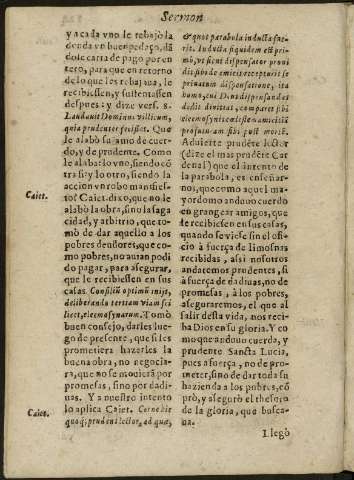 Sermon
y a cada vno le rebajò la
deuda vn buen pedaço, dã
dole carta de pago por en
tero, para que en retorno
de lo que les rebajaua, le
recibiessen, y sustentassen
despues: y dize vers. 8.
Laudauit Dominus villicum,
quia prudenter fecisset. Que
le alabò su amo de cuer-
do, y de prudente. Como
le alaba: lo vno, siendo cõ
tra si: y lo otro, siendo la
accion vn robo manifies-
to? Caiet. dixo, que no le
alabò la obra, sino la saga
cidad, y arbitrio, que to-
mò de dar aquello a los
pobres deudores, que co-
mo pobres, no auian podi
do pagar, para assegurar,
que le recibiessen en sus
casas. Consiliũ optimũ inijt,
deliberando tertiam viam sci
licet, eleemosynarum. Tomò
buen consejo, darles lue-
go de presente, que si les
prometiera hazerles la
buena obra, no negocia-
ra, que no se mouerà por
promesas, sino por dadi-
uas. Y a nuestro intento
lo aplica Caiet. Cerne hic
quoq; prudent lector, ad quæ,
Caiet.
Caiet.
& quot parabola inducta fue-
rit. Inducta siquidem est pri-
mò, vt sicut dispensator proui
dit sibi de amicis recepturis se
priuatum dispensatione, ita
homo, cui Deus dispensandas
dedit diuitias, comparet sibi
eleemosynis celestes amicitias
profuturam sibi post mortẽ.
Aduierte prudẽte lector
(dize el mas prudẽte Car
denal) que el intento de
la parabola, es enseñar-
nos, que como aquel ma-
yordomo anduuo cuerdo
en grangear amigos, que
le recibiessen en sus casas,
quando se viesse sin el ofi-
cio à fuerça de limosnas
recibidas, assi nosotros
andaremos prudentes, si
à fuerça de dadiuas, no de
promesas, à los pobres,
asseguraremos, el que al
salir desta vida, nos reci-
ba Dios en su gloria. Y co
mo que anduuo cuerda, y
prudente Sancta Lucia,
pues a fuerça, no de pro-
meter, sino de dar toda su
hazienda a los pobres, cõ
prò, y assegurò el thesoro
de la gloria, que busca-
ua.
Llegò